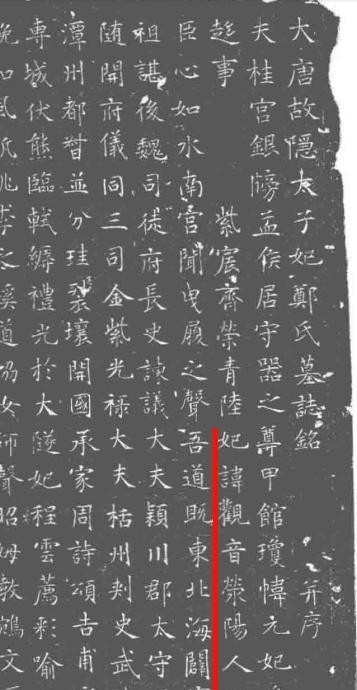 大唐故隱太子妃鄭氏墓誌銘 并序
夫桂宮銀牓益俟居守器之尊甲館瓊幃元妃
趍事 紫宸齊榮青陸妃諱觀音滎陽人
臣心如水南宮聞曳履之聲吾道既東北海闢
祖諶後魏司徒府長史諫議大夫潁川郡太守
随開府儀同三司金紫光祿大夫栝州刾史武
潭州都督並分珪裂壤開國承家周詩頌吉甫
專城伏熊臨軾縟禮光於大隧妃程雲薦彩喻
之溪道協女師聲昭姆教鵷文